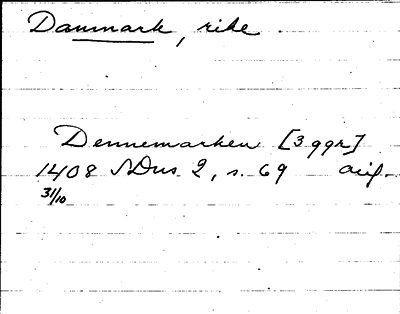 Danmark, rike
Dennemarken [3 ggr]
1408 SDns 2, s. 69 orig.
31/10